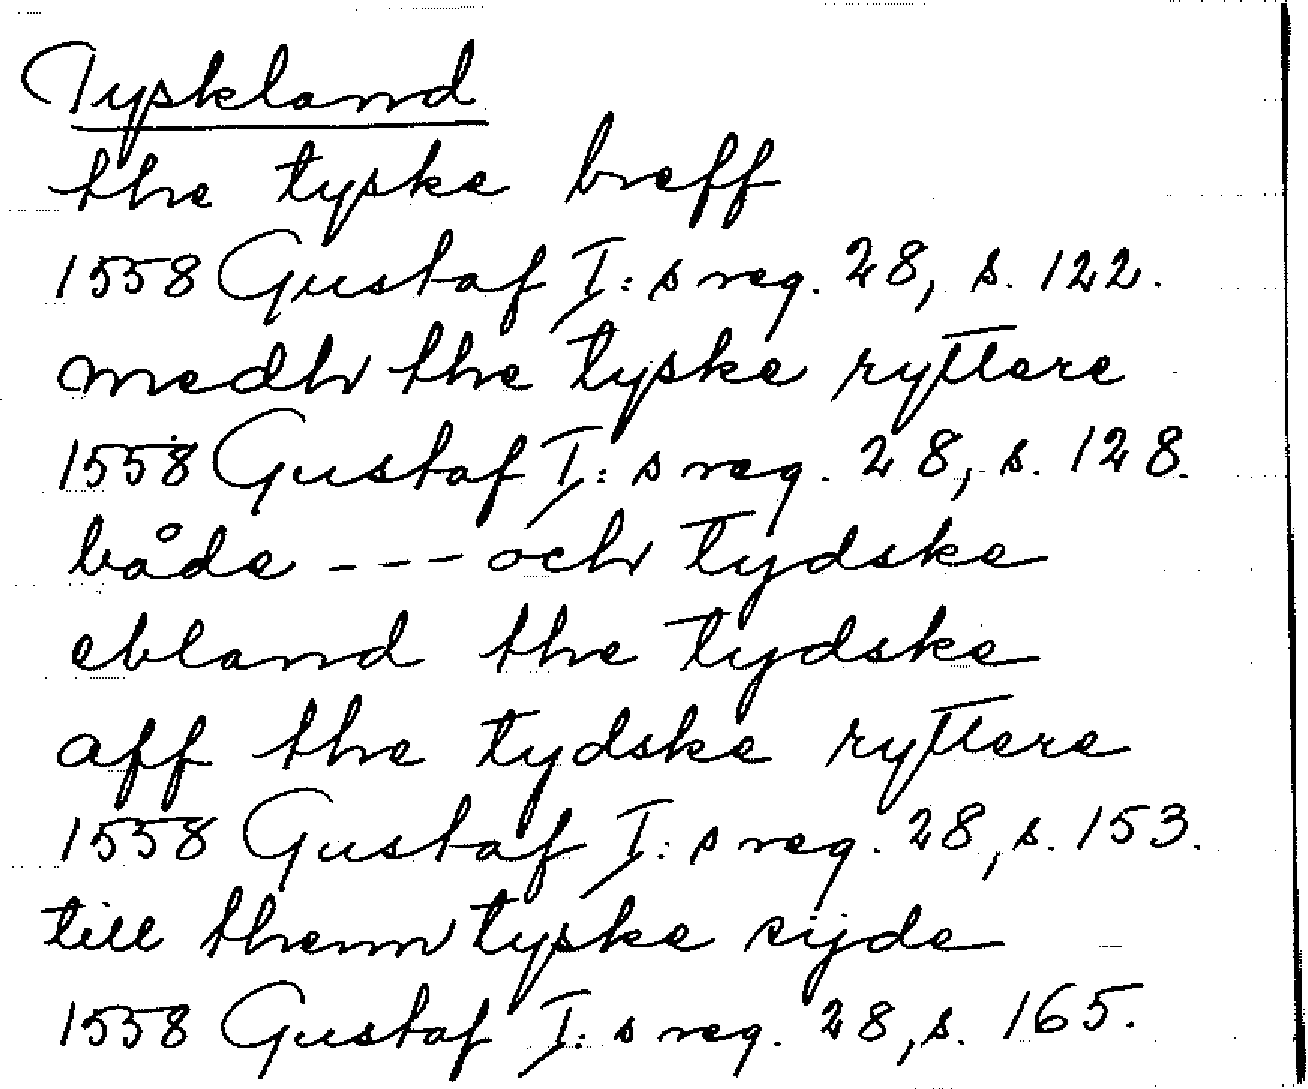 Tyskland
the tyske breff
1558 Gustaf I: s reg. 28, s. 122.
medh the tyske ryttere
1558 Gustaf I: s reg. 28, s. 128.
både --- och tydske
ebland the tydske
aff the tydske ryttere
1558 Gustaf I: s reg. 28, s. 153.
till them tyske sijde
1558 Gustaf I: s reg. 28, s. 165.